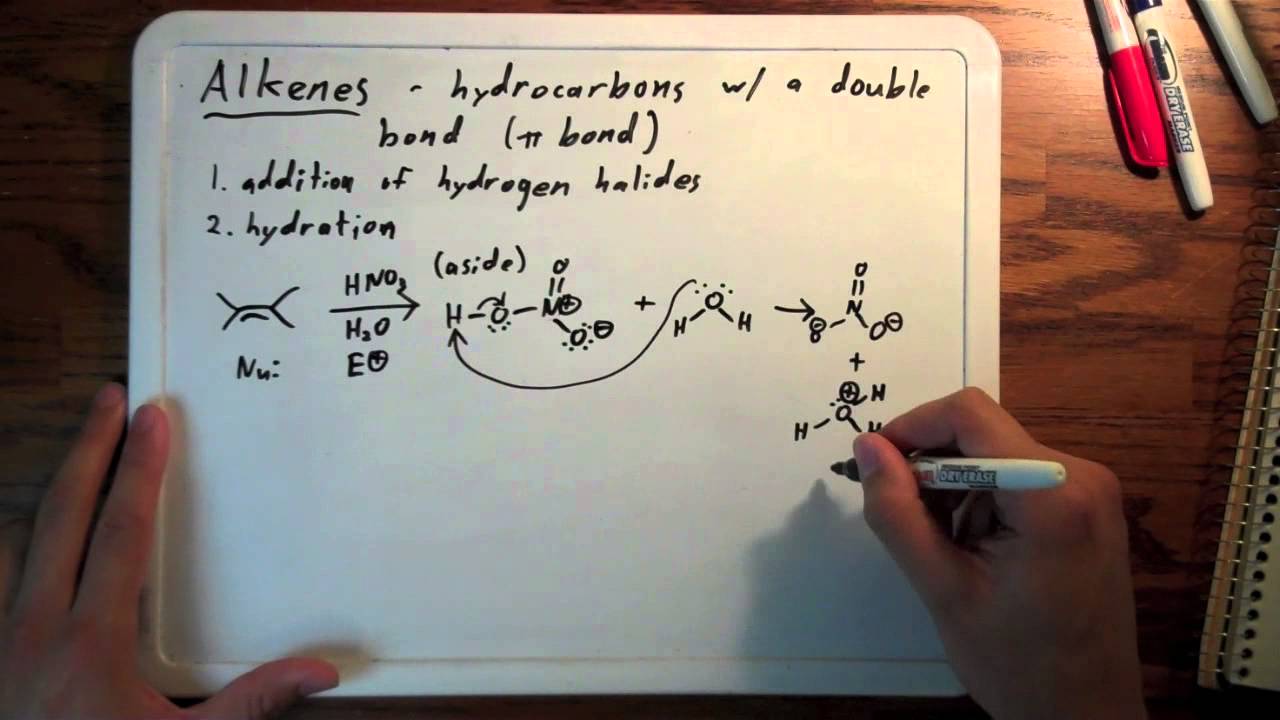 Alkenes - hydrocarbons w/ a double
bond (π bond)
1. addition of hydrogen halides
2. hydration
(aside)
HNO₃
H₂O
Nu:
E⊕
H-O-N⊕
O
O⊖
+
O
H H
→
O
N
O⊖
O⊖
+
⊕
O
H
H
H
DRY ERASE
DRY ERASE